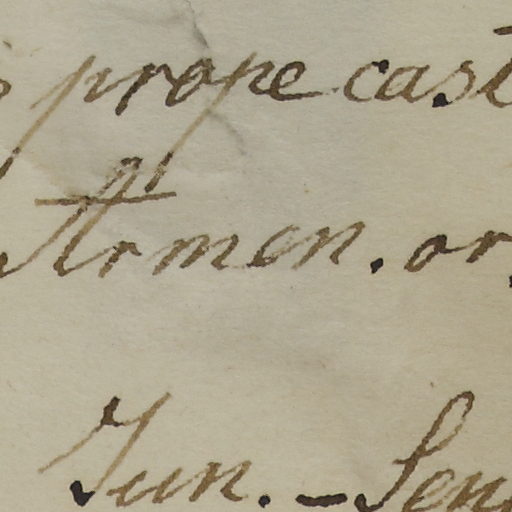 prope cast
Armen. or.
Jun. – Sen